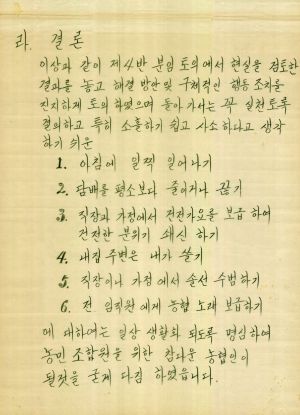 라. 결론
이상과 같이 제4반 분임 토의에서 현실을 검토한
결과를 놓고 해결 방안 및 구체적인 행동 조치를
진지하게 토의 하였으며 돌아가서는 꼭 실천토록
결의하고 특히 소홀하기 쉽고 사소하다고 생각
하기 쉬운
1. 아침에 일찍 일어나기
2. 담배를 평소보다 줄이거나 끊기
3. 직장과 가정에서 건전가요를 보급 하여
건전한 분위기 쇄신 하기
4. 내집 주변은 내가 쓸기
5. 직장이나 가정에서 솔선 수범하기
6. 전 임직원에게 농협 노래 보급하기
에 대하여는 일상 생활화 되도록 명심하여
농민 조합원을 위한 참다운 농협인이
될것을 굳게 다짐 하였습니다.